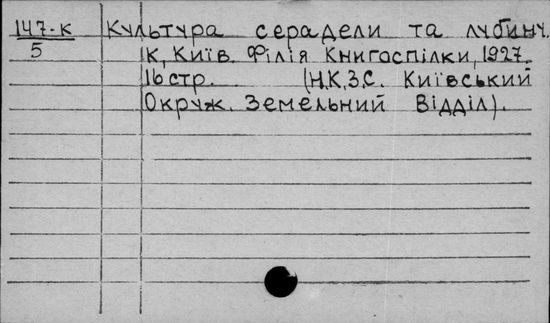 147-К Культура серадели та лубину.
5 К, Київ. Філія Книгоспілки, 1927.
16 стр. (Н.К.З.С. Київський
Округ. Земельний Відділ).